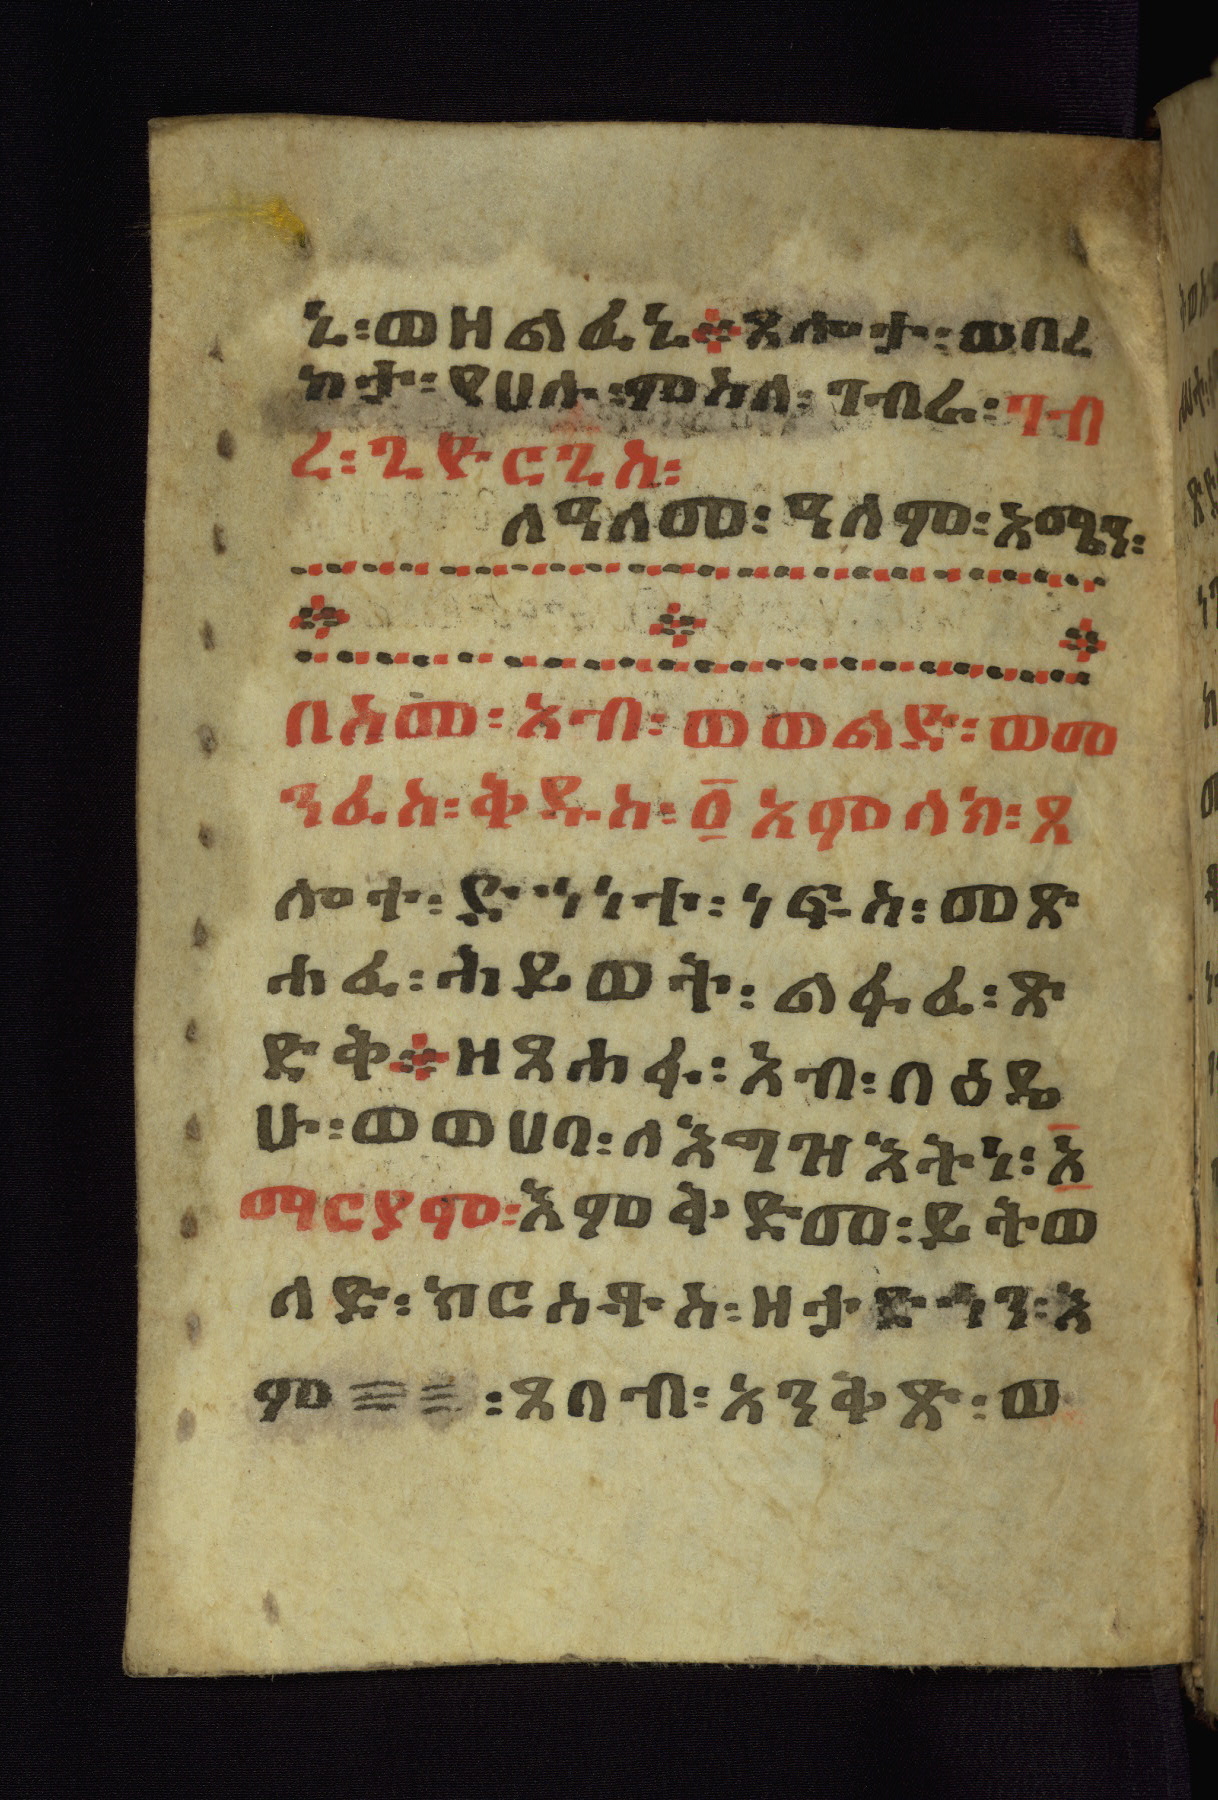 ኒ፡ወዘልፈኒ፨ጸሎታ፡ወበረ
ከታ፡የሀሉ፡ምስለ፡ገብራ፡ገብ
ረ፡ጊዮርጊስ፡
ለዓለመ፡ዓለም፡አሜን፡
በስመ፡አብ፡ወወልድ፡ወመ
ንፈስ፡ቅዱስ፡፩አምላክ፡ጸ
ሎተ፡ድኅነተ፡ነፍስ፡መጽ
ሐፈ፡ሕይወት፡ልፋፈ፡ጽ
ድቅ፨ዘጸሐፋ፡አብ፡በዕዴ
ሁ፡ወወሀባ፡ለእግዝእትነ፡እ
ማርያም፡እምቅድመ፡ይትወ
ለድ፡ክርስቶስ፡ዘታድኅን፡እ
ም ፡ጸባብ፡አንቅጽ፡ወ